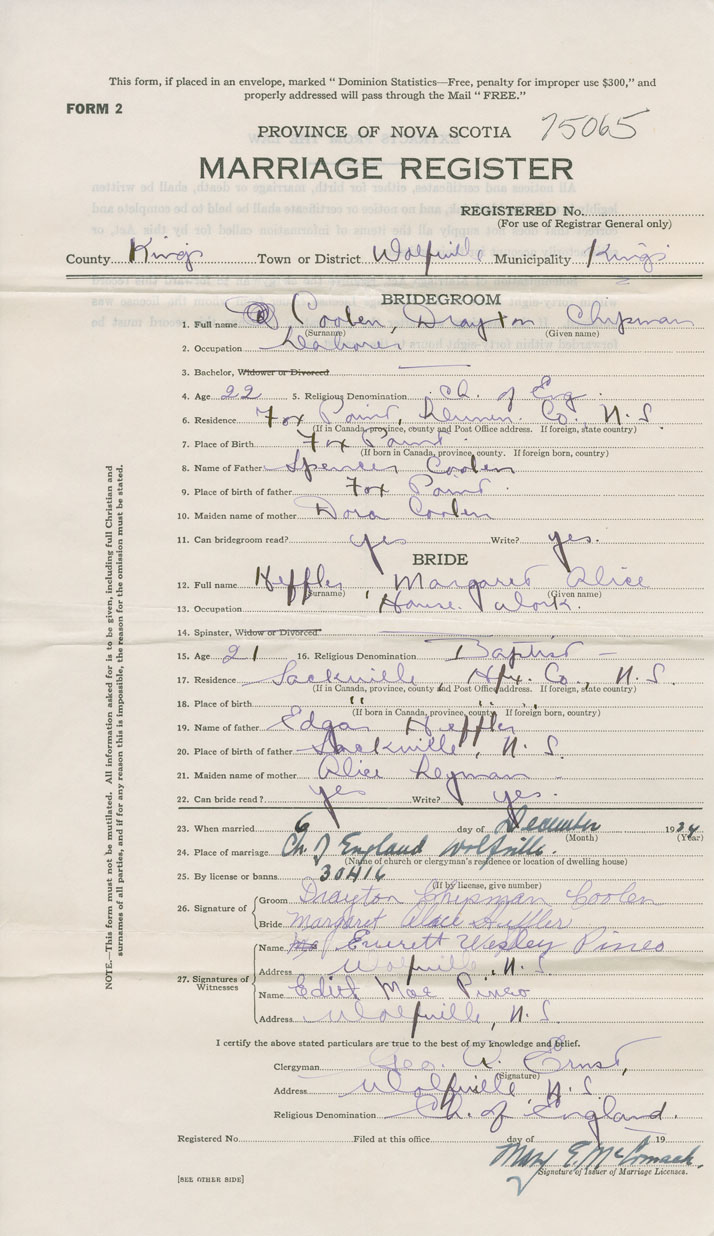 This form, if placed in an envelope, marked " Dominion Statistics—Free, penalty for improper use $300," and
properly addressed will pass through the Mail " FREE."
FORM 2
PROVINCE OF NOVA SCOTIA 75065
MARRIAGE REGISTER
REGISTERED No.
(For use of Registrar General only)
County Kings Town or District Wolfville Municipality Kings
BRIDEGROOM
1. Full name Coolen, Drayton Chipman
(Surname) (Given name)
2. Occupation Laborer
3. Bachelor, Widower or Divorced
4. Age 22 5. Religious Denomination Ch. of Eng.
6. Residence Fox Point, Lunen. Co., N. S.
(If in Canada, province, county and Post Office address. If foreign, state country)
7. Place of Birth Fox Point
(If born in Canada, province, county. If foreign born, country)
8. Name of Father Spencer Coolen
9. Place of birth of father Fox Point
10. Maiden name of mother Dora Coolen
11. Can bridegroom read? yes Write? yes.
BRIDE
12. Full name Heffler, Margaret Alice
(Surname) (Given name)
13. Occupation House Work.
14. Spinster, Widow or Divorced
15. Age 21 16. Religious Denomination Baptist —
17. Residence Sackville Hfx. Co., N. S.
(If in Canada, province, county and Post Office address. If foreign, state country)
18. Place of birth " " " "
(If born in Canada, province, county. If foreign born, country)
19. Name of father Edgar Heffler
20. Place of birth of father Sackville, N. S.
21. Maiden name of mother Alice Leyman
22. Can bride read? yes Write? yes.
23. When married 6 day of December 1934
(Month) (Year)
24. Place of marriage Ch. of England Wolfville.
(Name of church or clergyman's residence or location of dwelling house)
25. By license or banns 30416
(If by license, give number)
26. Signature of Groom Drayton Chipman Coolen
Bride Margaret Alace Huffler
27. Signatures of Witnesses Name Everett Wesley Pineo
Address Wolfville, N. S.
Name Edith Mae Pineo
Address Wolfville, N. S.
I certify the above stated particulars are true to the best of my knowledge and belief.
Clergyman Geo. A. Ernst,
(Signature)
Address Wolfville, N. S.
Religious Denomination Ch. of England.
Registered No. Filed at this office day of 19
Mary E. McComack.
Signature of Issuer of Marriage Licenses.
[SEE OTHER SIDE]
NOTE.—This form must not be mutilated. All information asked for is to be given, including full Christian and
surnames of all parties, and if for any reason this is impossible, the reason for the omission must be stated.